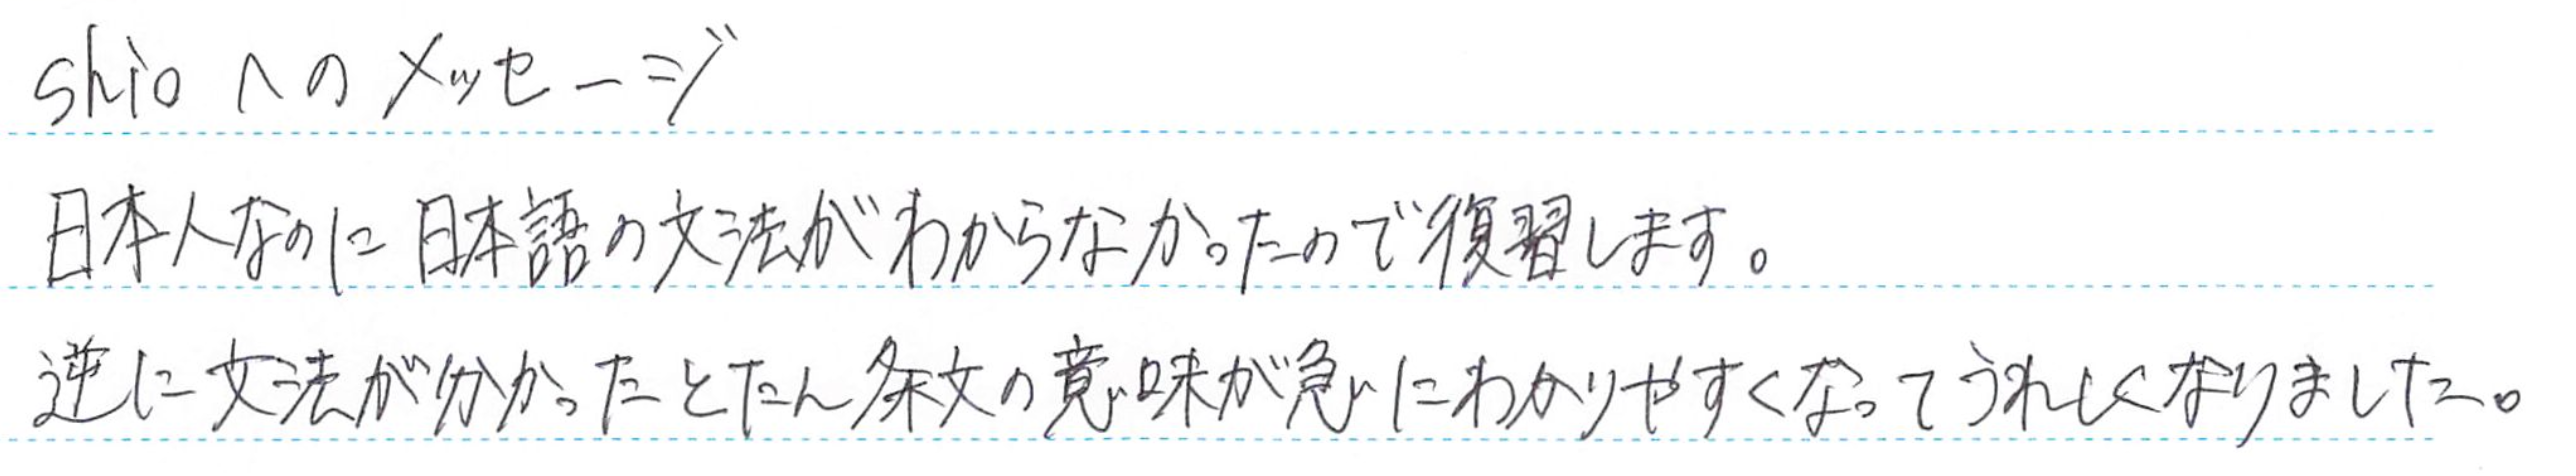 shioへのメッセージ
日本人なのに日本語の文法がわからなかったので復習します。
逆に文法が分かったとたん条文の意味が急にわかりやすくなってうれしくなりました。